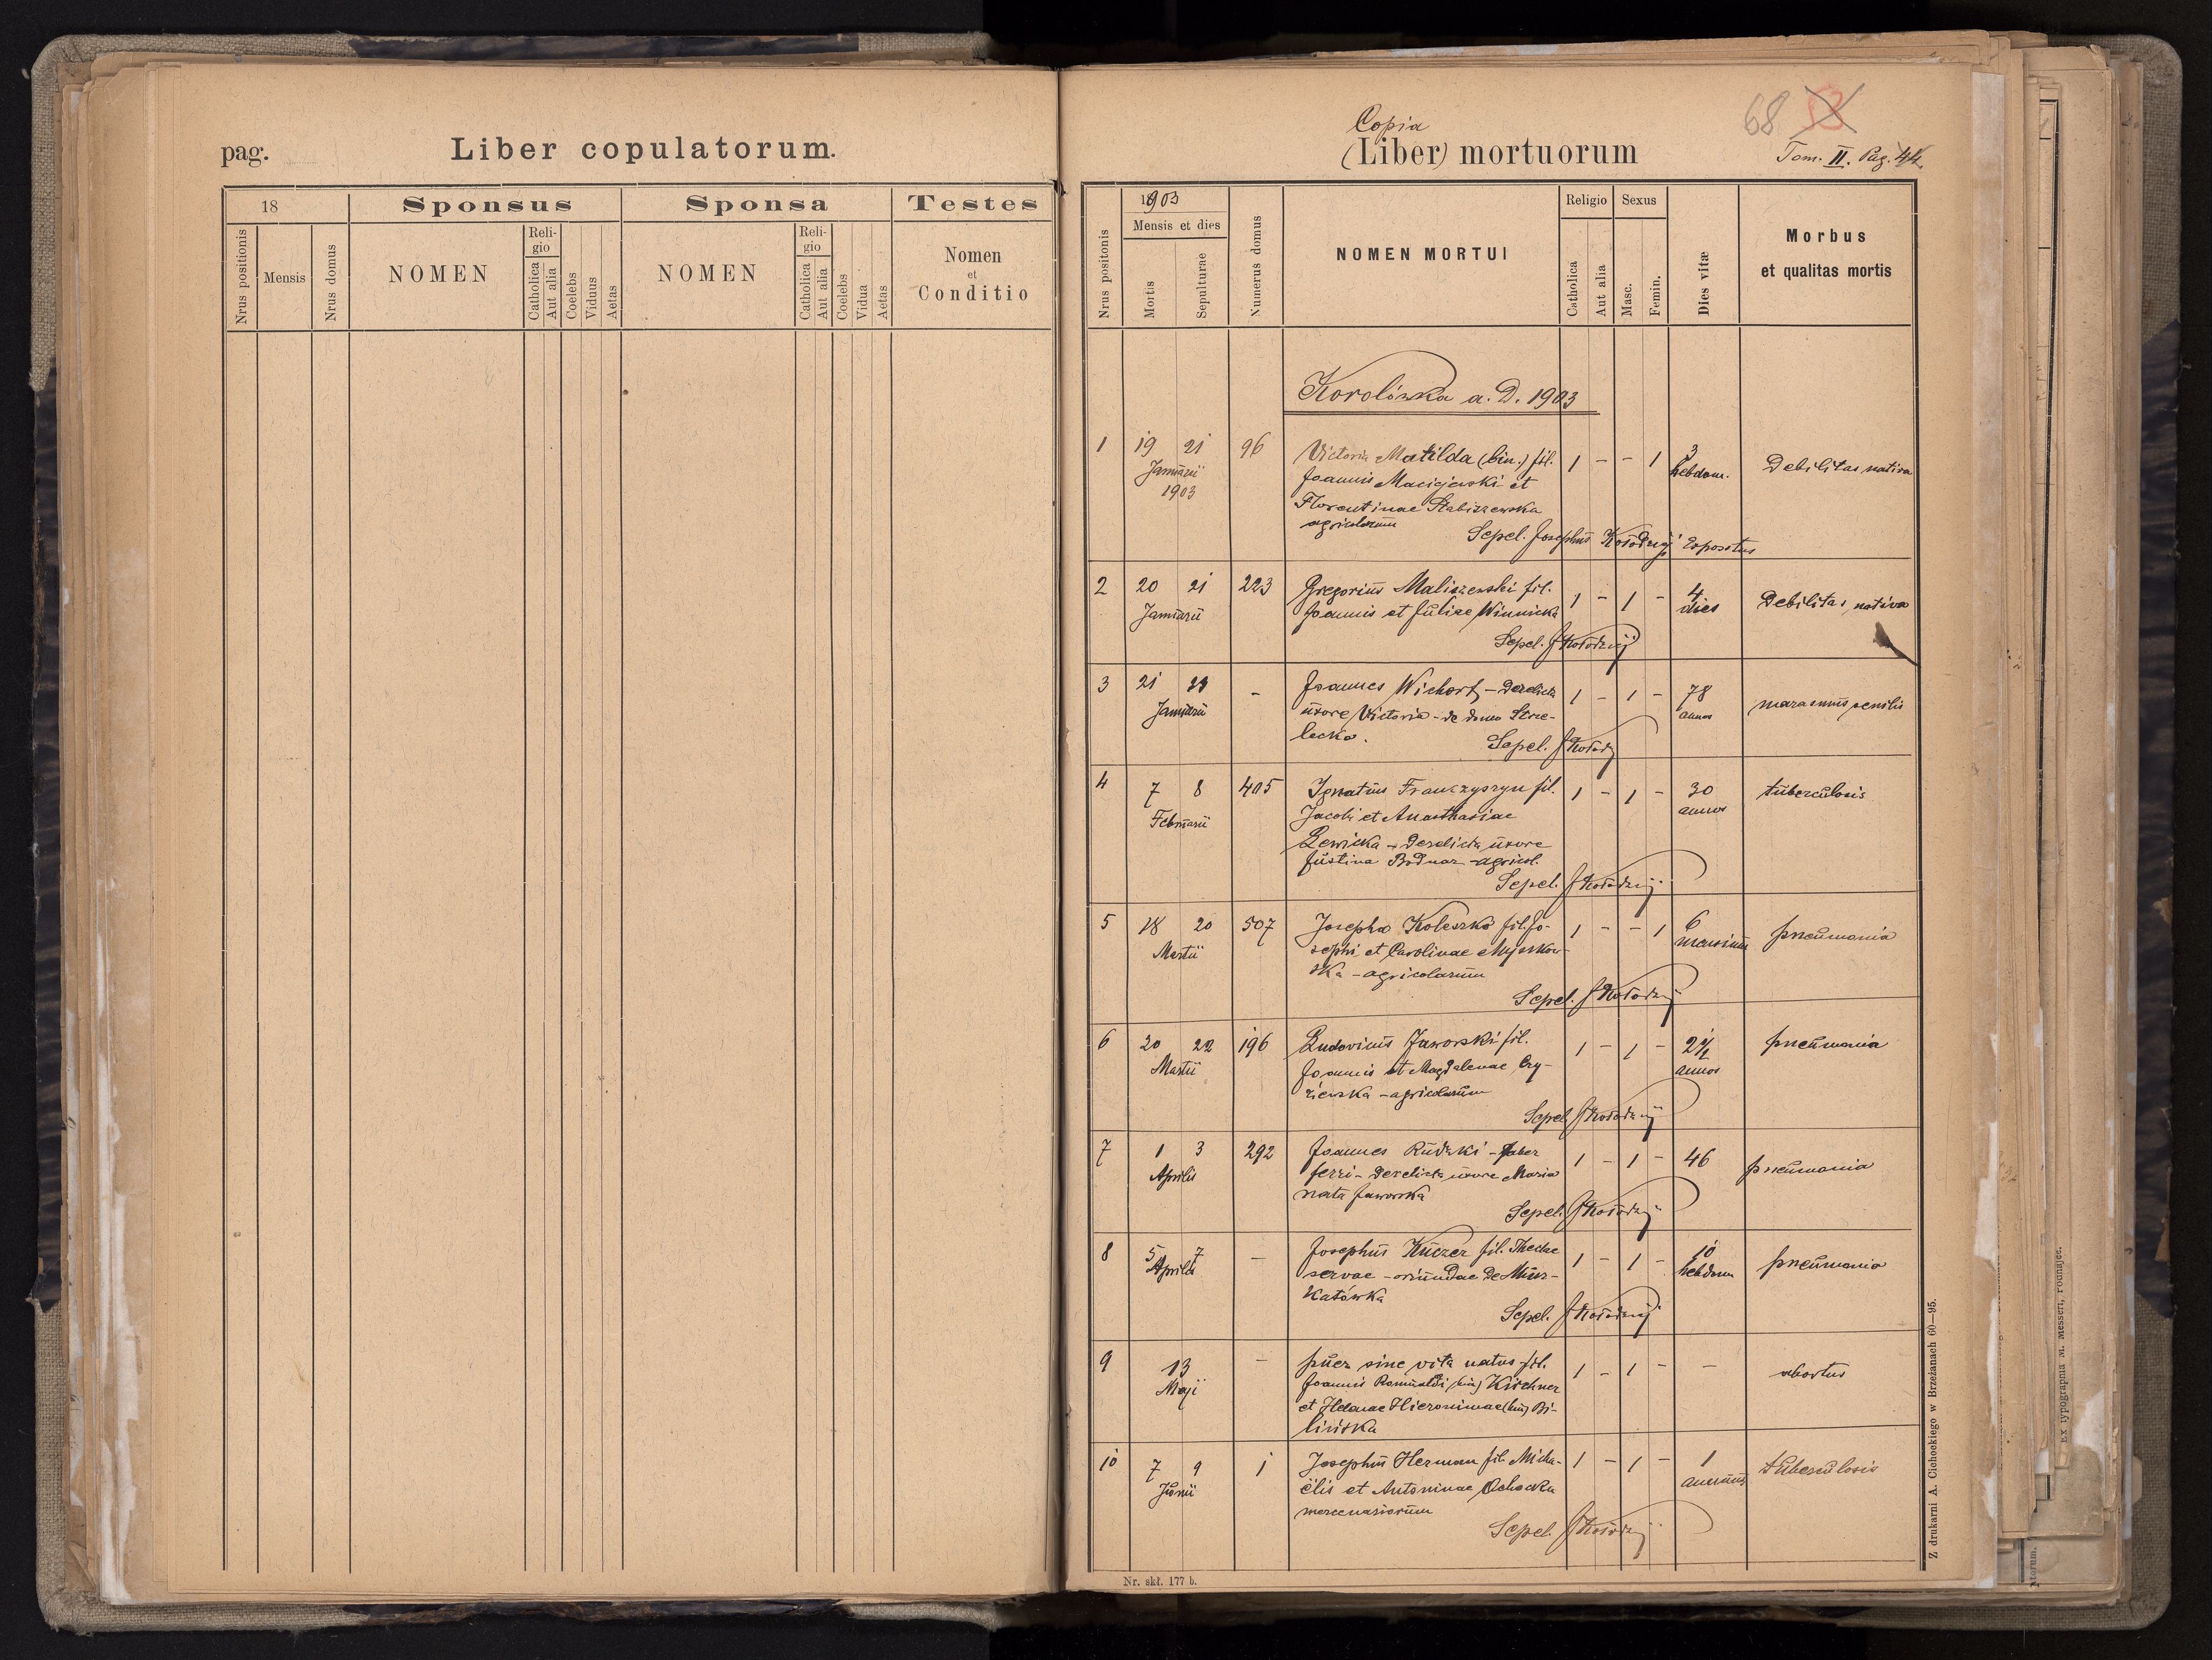 pag.
Liber copulatorum.
18
Sponsus
Sponsa
Testes
Nrus positionis
Mensis
Nrus domus
NOMEN
Reli-
gio
Catholica
Aut alia
Coelebs
Viduus
Aetas
NOMEN
Reli-
gio
Catholica
Aut alia
Coelebs
Vidua
Aetas
Nomen
et
Conditio
68
53
Copia
(Liber) mortuorum
Tom. II. Pag. 44.
Nrus positonis
1903
Mensis et dies
Mortis
Sepulturae
Numerus domus
NOMEN MORTUI
Religio
Catholica
Aut alia
Sexus
Masc.
Femin.
Dies vitæ
Morbus
et qualitas mortis
Korolówka a. D. 1903
1 19 21 96 Victoria Matilda (bin.) fil. 1 - - 1 3 Debilitas nativa
Januarii Joannis Maciejewski et hebdom.
1903 Florentinae Stabiszewska
agricolarum
Sepel. Josephus Kołodzij Expositus
2 20 21 223 Gregorius Maliszewski fil. 1 - 1 - 4 Debilitas nativa
Januarii Joannis et Juliae Winnicka dies
Sepel. J Kołodzij
3 21 23 - Joannes Wichort - derelicta 1 - 1 - 78 marasmus senilis
Januarii uxore Victoria - de domo Strze- annos
lecka.
Sepel. J Kołodzij
4 7 8 405 Ignatius Franczyszyn fil. 1 - 1 - 30 tuberculosis
Februarii Jacobi et Anasthasiae annos
Lewicka - derelicta uxore
Justina Bodnar - agricol.
Sepel. J Kołodzij
5 18 20 507 Josepha Koleszko fil. Jo- 1 - - 1 6 pneumonia
Martii sephi et Carolinae Myszkow- mensium
ska - agricolarum
Sepel. J Kołodzij
6 20 22 196 Ludovicus Jaworski fil. 1 - 1 - 2 1/2 pneumonia
Martii Joannis et Magdalenae Czy- annos
żewska - agricolarum
Sepel J Kołodzij
7 1 3 292 Joannes Rudzki - faber 1 - 1 - 46 pneumonia
Aprilis ferri - derelicta uxore Maria
nata Jaworska
Sepel. J Kołodzij
8 5 7 - Josephus Kuczer fil. Theclae 1 - 1 - 10 pneumonia
Aprilis servae - oriundae de Musz- hebdom
katówka
Sepel. J Kołodzij
9 13 - puer sine vita natus fil. 1 - 1 - - abortus
Maji Joannis Romualdi (bin) Kirchner
et Helenae Hieronimae (bin) Bi-
lińska
10 7 9 1 Josephus Herman fil. Micha- 1 - 1 - 1 tuberculosis
Junii ëlis et Antoninae Ochocka
mercenariorum
Sepel. J Kołodzij
Nr. skł. 177 b.
Z drukarni A. Cichockiego w Brzeżanach 60—95.